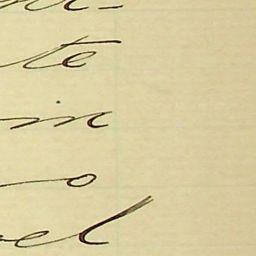 te
in
o
el